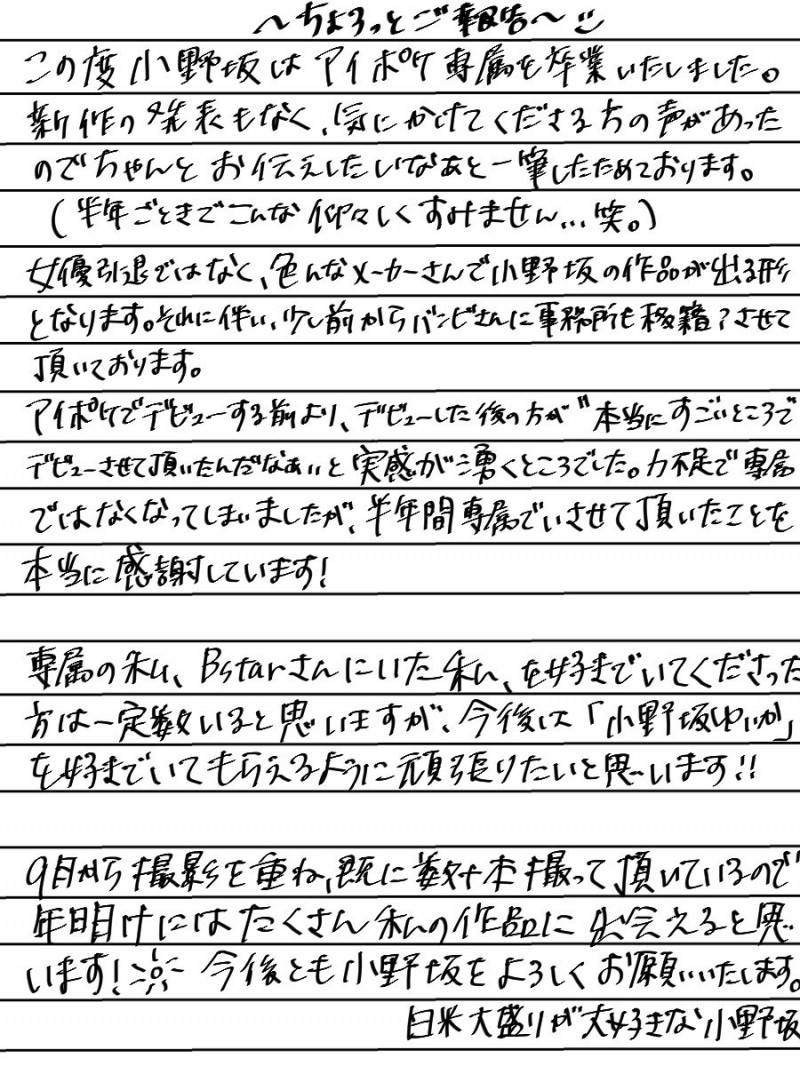 〜ちょろっとご報告〜
この度小野坂はアイポケ専属を卒業いたしました。
新作の発表もなく、気にかけてくださる方の声があった
のでちゃんとお伝えしたいなぁと一筆したためております。
(半年ごときでこんな仰々しくすみません...笑。)
女優引退ではなく、色んなメーカーさんで小野坂の作品が出る形
となります。それに伴い、少し前からバンビさんに事務所も移籍?させて
頂いております。
アイポケでデビューする前より、デビューした後の方が〝本当にすごいところで
デビューさせて頂いたんだなぁ〟と実感が湧くところでした。力不足で専属
ではなくなってしまいましたが、半年間専属でいさせて頂いたことを
本当に感謝しています!
専属の私、Bstarさんにいた私、を好きでいてくださった
方は一定数いると思いますが、今後は「小野坂ゆいか」
を好きでいてもらえるように頑張りたいと思います!!
9月から撮影を重ね、既に数十本撮って頂いているので
年明けにはたくさん私の作品に出会えると思
います! 今後とも小野坂をよろしくお願いいたします。
白米大盛りが大好きな小野坂